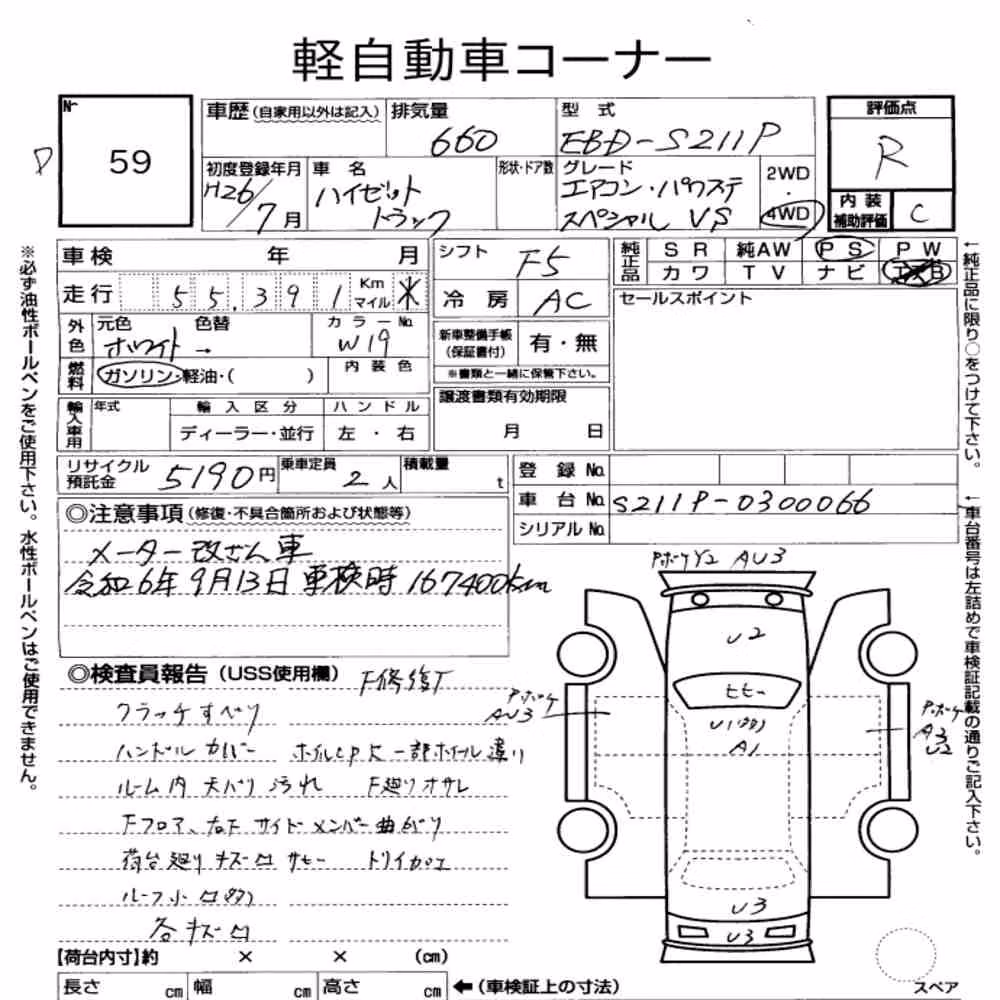 軽自動車コーナー
No.
59
車歴(自家用以外は記入)
排気量
660
型 式
EBD-S211P
評価点
R
初度登録年月
H26/7月
車 名
ハイゼット
トラック
形状・ドア数
グレード
エアコン・パワステ
スペシャル VS
2WD
・
4WD
内 装
補助評価
C
※必ず油性ボールペンをご使用下さい。水性ボールペンはご使用できません。
車検 年 月
シフト
F5
純正品
SR 純AW PS PW
カワ TV ナビ
走行 55,391 Km
マイル
冷 房
AC
セールスポイント
外色
元色 色替
ホワイト →
カラーNo.
W19
新車整備手帳
(保証書付)
有・無
※書類と一緒に保管下さい。
燃料
ガソリン・軽油・( )
内 装 色
譲渡書類有効期限
月 日
輸入車用
年式
輸 入 区 分
ハ ン ド ル
ディーラー・並行
左 ・ 右
←純正品に限り○をつけて下さい。
リサイクル
預託金
5190円
乗車定員
2人
積載量
t
登 録 No.
車 台 No.
S211P-0300066
シリアルNo.
←車台番号は左詰めで車検証記載の通りご記入下さい。
◎注意事項(修復・不具合箇所および状態等)
メーター改ざん車
令和6年9月13日車検時167400km
◎検査員報告(USS使用欄)
F修復下
クラッチすべり
ハンドルカバー
一部ホイール違い
ルーム内 天バリ汚れ
F廻りオサレ
Fフロア、右F サイドメンバー曲がり
荷台廻り キズ凹 サビー
ルーフ小凹
各キズ凹
Pボケ Y2 AU3
U2
ヒヒー
A1
Pボケ
AU3
Pボケ
A3
U2
U3
U3
スペア
【荷台内寸】約 × × (cm)
長さ cm
幅 cm
高さ cm
←(車検証上の寸法)